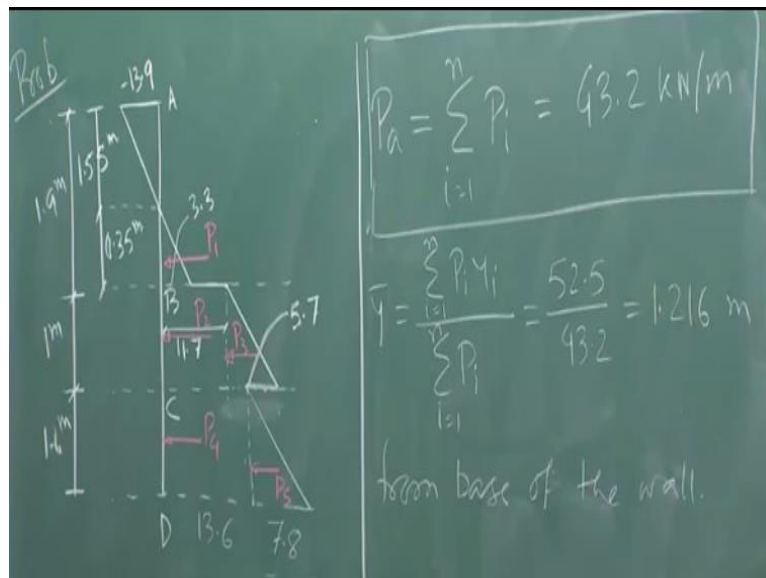 Prob
-13.9
A
1.9m
1.55m
0.35m
3.3
P1
B
P2
11.7
P3
5.7
1m
C
1.6m
P4
P5
D
13.6
7.8
Pa = n∑i=1 Pi = 43.2 KN/m
ȳ = n∑i=1 PiYi / n∑i=1 Pi = 52.5 / 43.2 = 1.216 m
from base of the wall.